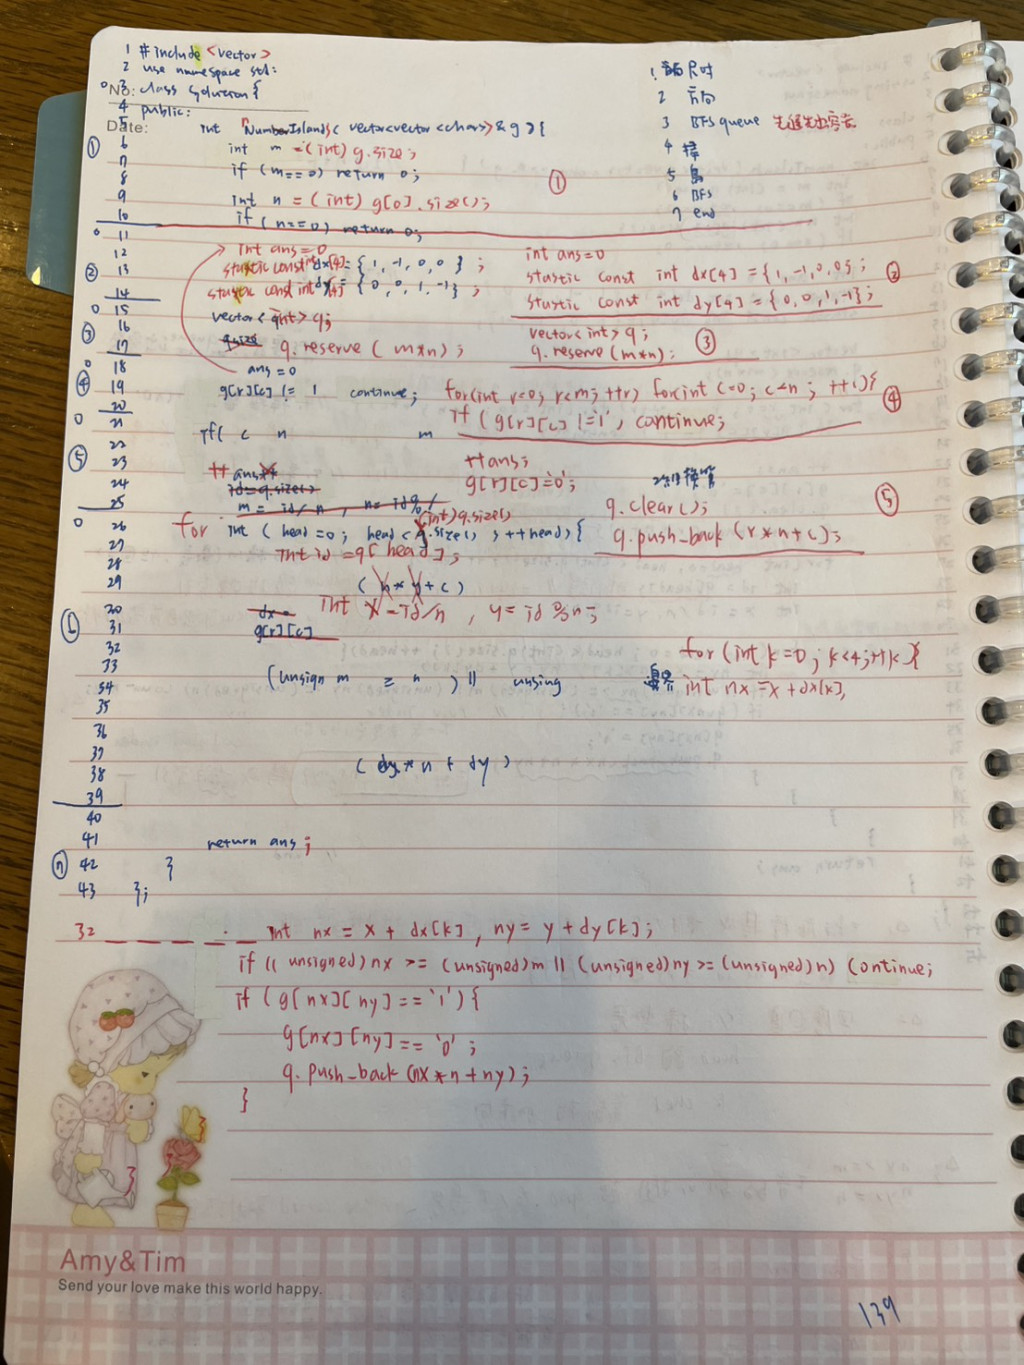 1 #include <vector>
2 use namespace std:
No: 3 class Solution {
4 public:
Date: 5 int NumberIslands( vector<vector <char>> & g ) {
① 6 int m = (int) g.size;
7 if (m==0) return 0;
8 ①
9 int n = (int) g[0].size();
10 if (n==0) return 0;
1. 尺寸
2 方向
3 BFS queue
4 掃
5 島
6 BFS
7 end
0 11 int ans=0
② 12 stastic const int dx[4]= { 1, -1, 0, 0 } ;
13 stastic const int dy[4] = { 0, 0, 1, -1} ;
14
int ans=0
stastic const int dx[4] = {1, -1, 0, 0};
stastic const int dy[4] = { 0, 0, 1, -1} ;
②
0 15 vector< int> q;
③ 16 q.size
17 q. reserve ( m*n) ;
vector<int> q;
q.reserve (m*n);
③
0 18 ans = 0
④ 19 g[r][c] != 1 continue; for(int r=0; r<m; ++r) for(int c=0; c<n ; ++c){
20 if ( g[r][c] !='1', continue;
④
0 21 if( c n m
22
⑤ 23 ++ ans++ ++ans;
24 id=q.size() g[r][c]='0';
25 m = id/n , n= id%/ q.clear();
⑤
(int)q.size()
0 26 for int ( head =0; head < q.size() ; ++head){ q.push_back (r*n+c);
27 int id = q[head];
28
29 ( n * y + c )
30 dx = int x = id/n , y = id %n;
31 g[r][c]
32 for (int k=0; k<4; ++k){
33 (unsign m ≥ n , ) || unsing 邊界 int nx = x + dx[x],
34
35
36
37 ( dx * n + dy )
38
39
40
41 return ans ;
⑦ 42 }
43 };
32 _ _ _ _ _ int nx = x + dx[k] , ny = y + dy[k];
if (( unsigned) nx >= (unsigned)m || (unsigned)ny >= (unsigned)n) continue;
if ( g[nx][ny] == '1') {
g[nx][ny] == '0' ;
q. push_back (nx*n+ny);
}
Amy&Tim
Send your love make this world happy.
139